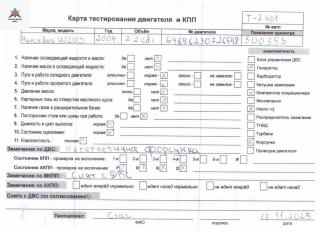 Карта тестирования двигателя и КПП
Т-2401
№ авто
Марка, модель Год Объём № двигателя Показания одометра
Mercedes W203 2004 2.2 cdi 500355
комплектность
1. Наличие охлаждающей жидкости в масле: да нет
2. Наличие масла в охлаждающей жидкости: да нет
3. Пуск и работа холодного двигателя: отлично норма плохо не завелся
4. Пуск и работа прогретого двигателя: отлично норма плохо не завелся
5. Давление масла: есть нет
6. Картерные газы из отверстия масляного щупа: да нет
7. Наличие газов в расширительном бачке: да нет
8. Посторонние стуки или шумы при работе: да нет
9. Дымность и цвет выхлопа: норма
10. Состояние сцепления: норма
11. Комплектность: полная
Блок управления ДВС
Генератор
Карбюратор
Катушки зажигания
Компрессор кондиционера
Моновпрыск
Насос гту
Распределитель зажигания
ТНВД
Турбина
Форсунки
Проводка двигателя
Замечания по ДВС: форсунка
Состояние КПП - проверка на включение: 1-я 2-я 3-я 4-я 5-я
Состояние АКПП - проверка на включение: P R N D
Замечания по МКПП: Снят с ДВС
Замечания по АКПП: едет вперёд нормально едет назад нормально не едет вперёд не едет назад
Снято с ДВС (по согласованию):
Тестировал: Стас 13.11.2025
ФИО подпись дата